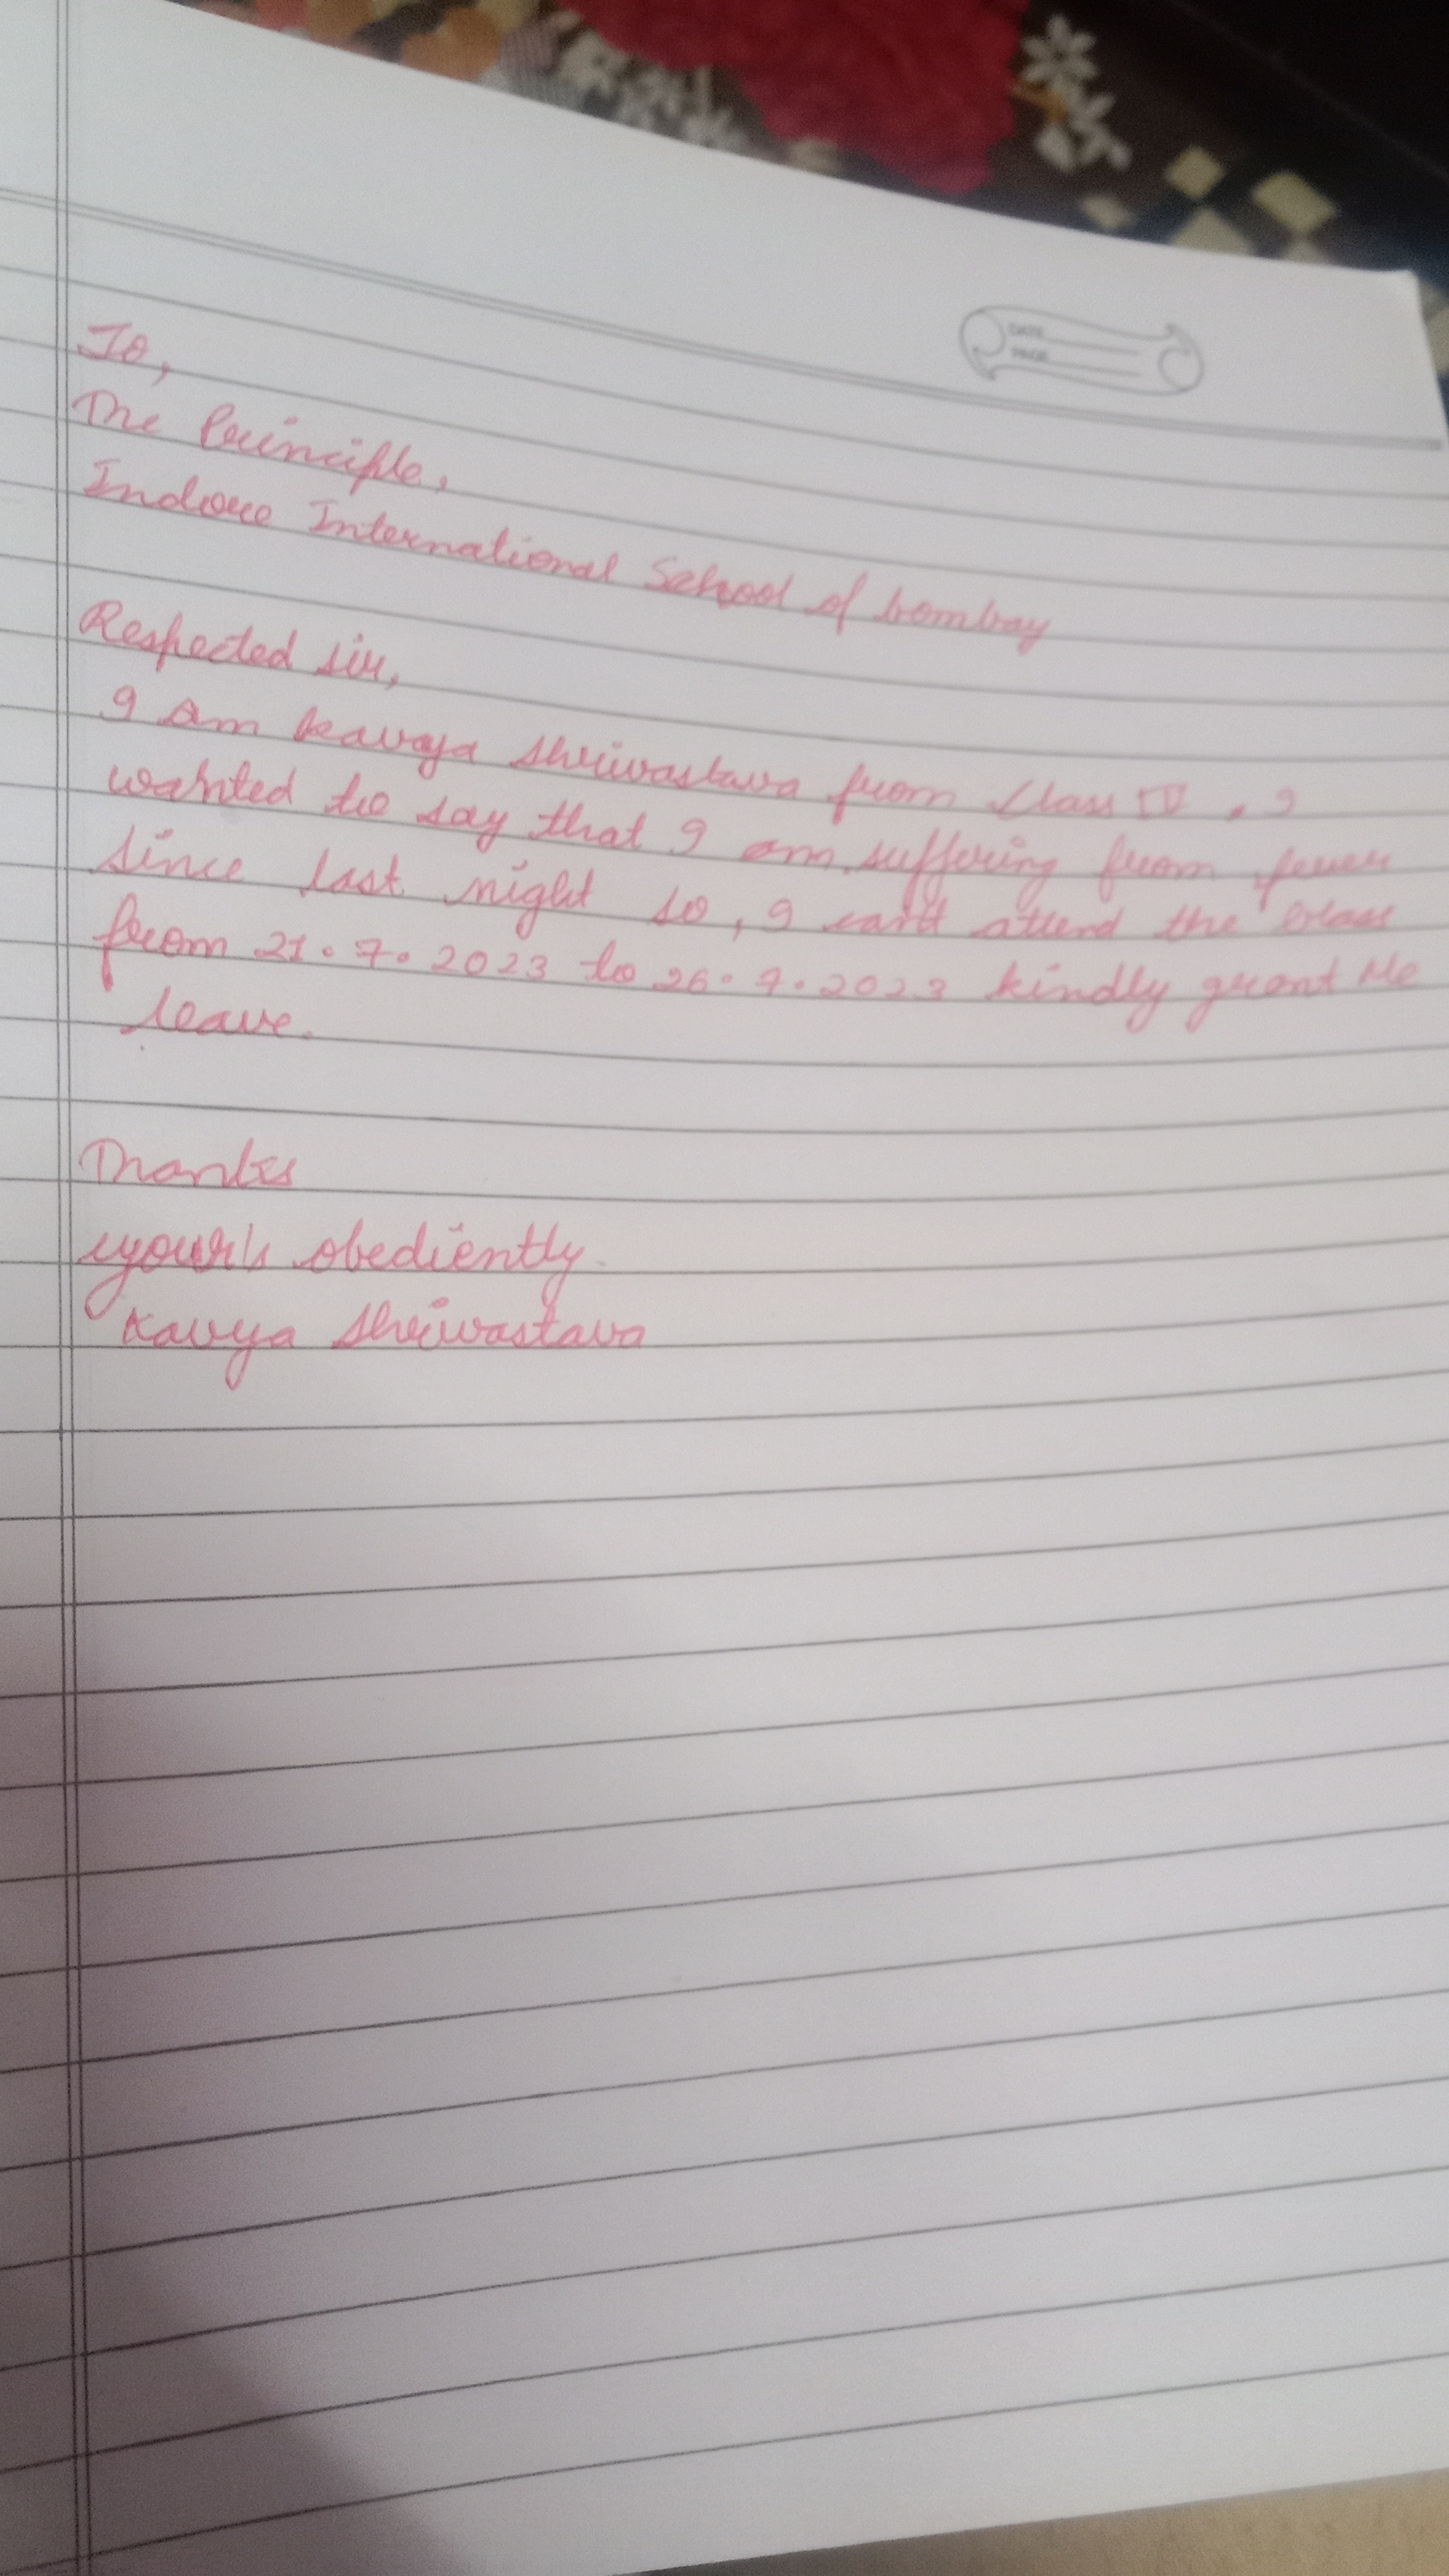 DATE
PAGE
To,
The Principle,
Indore International School of bombay
Respected sir,
I am kavaya shriwastava from class IV , I
wanted to say that I am suffering from fever
since last night so, I can't attend the class
from 21.7.2023 to 26.7.2023 kindly grant Me
leave.
Thanks
your's obediently
Kavya shriwastava